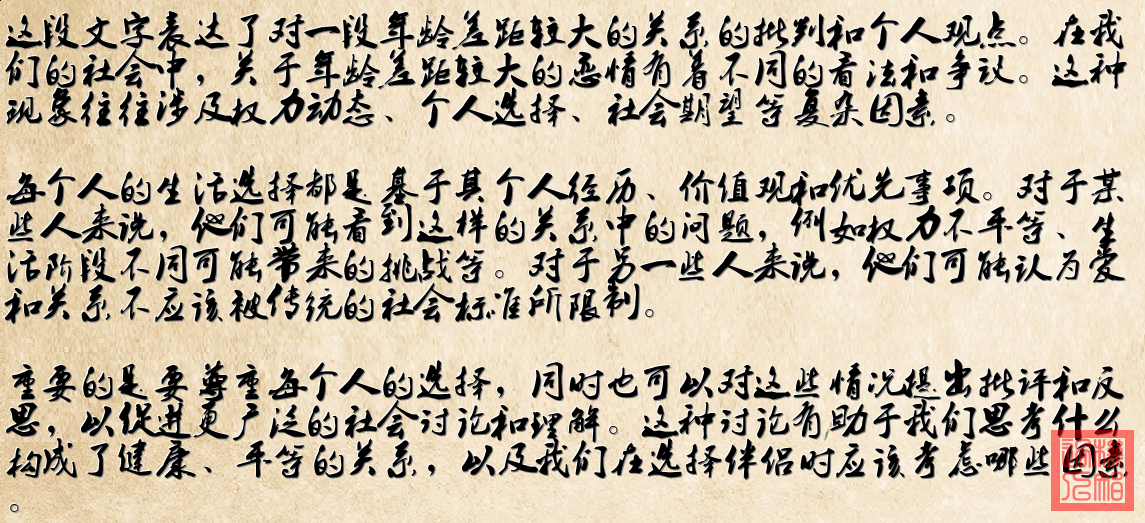 这段文字表达了对一段年龄差距较大的关系的批判和个人观点。在我
们的社会中，关于年龄差距较大的恋情有着不同的看法和争议。这种
现象往往涉及权力动态、个人选择、社会期望等复杂因素。
每个人的生活选择都是基于其个人经历、价值观和优先事项。对于某
些人来说，他们可能看到这样的关系中的问题，例如权力不平等、生
活阶段不同可能带来的挑战等。对于另一些人来说，他们可能认为爱
和关系不应该被传统的社会标准所限制。
重要的是要尊重每个人的选择，同时也可以对这些情况提出批评和反
思，以促进更广泛的社会讨论和理解。这种讨论有助于我们思考什么
构成了健康、平等的关系，以及我们在选择伴侣时应该考虑哪些因素
。